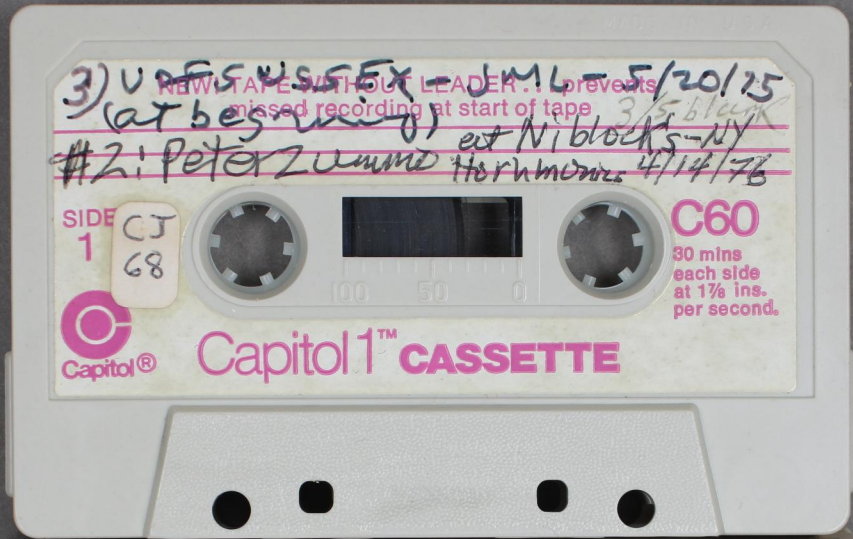 3) U OF SUSSEX - JML - 5/20/75
NEW! TAPE WITHOUT LEADER... prevents
missed recording at start of tape
(at beginning)
3/5 blank
#2: Peter Zummo at Niblock's - NY
Hornmonics 4/14/76
SIDE
1
CJ
68
C60
30 mins
each side
at 1⅞ ins.
per second.
100 50 0
Capitol®
Capitol 1™ CASSETTE